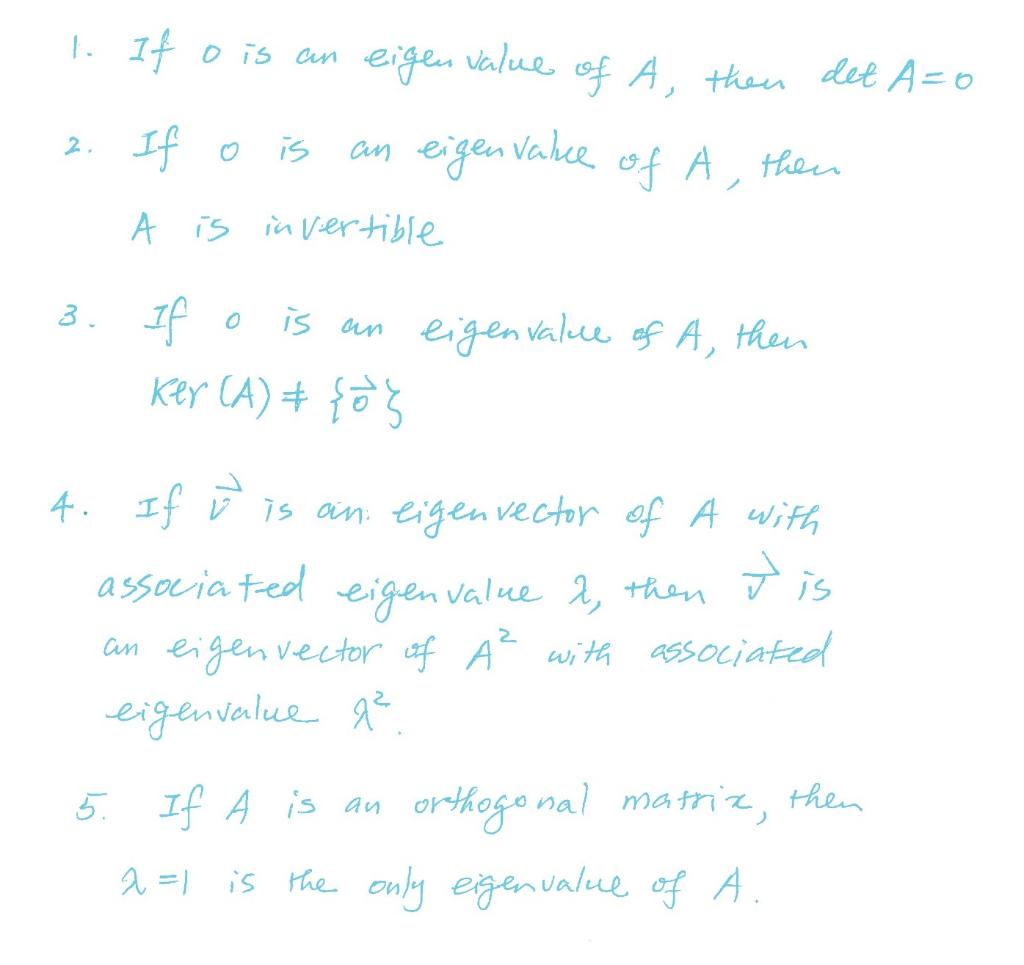 1. If 0 is an eigenvalue of A, then det A = 0
2. If 0 is an eigenvalue of A, then
A is invertible
3. If 0 is an eigenvalue of A, then
Ker (A) ≠ {0⃗}
4. If v⃗ is an eigenvector of A with
associated eigenvalue λ, then v⃗ is
an eigenvector of A² with associated
eigenvalue λ².
5. If A is an orthogonal matrix, then
λ = 1 is the only eigenvalue of A.